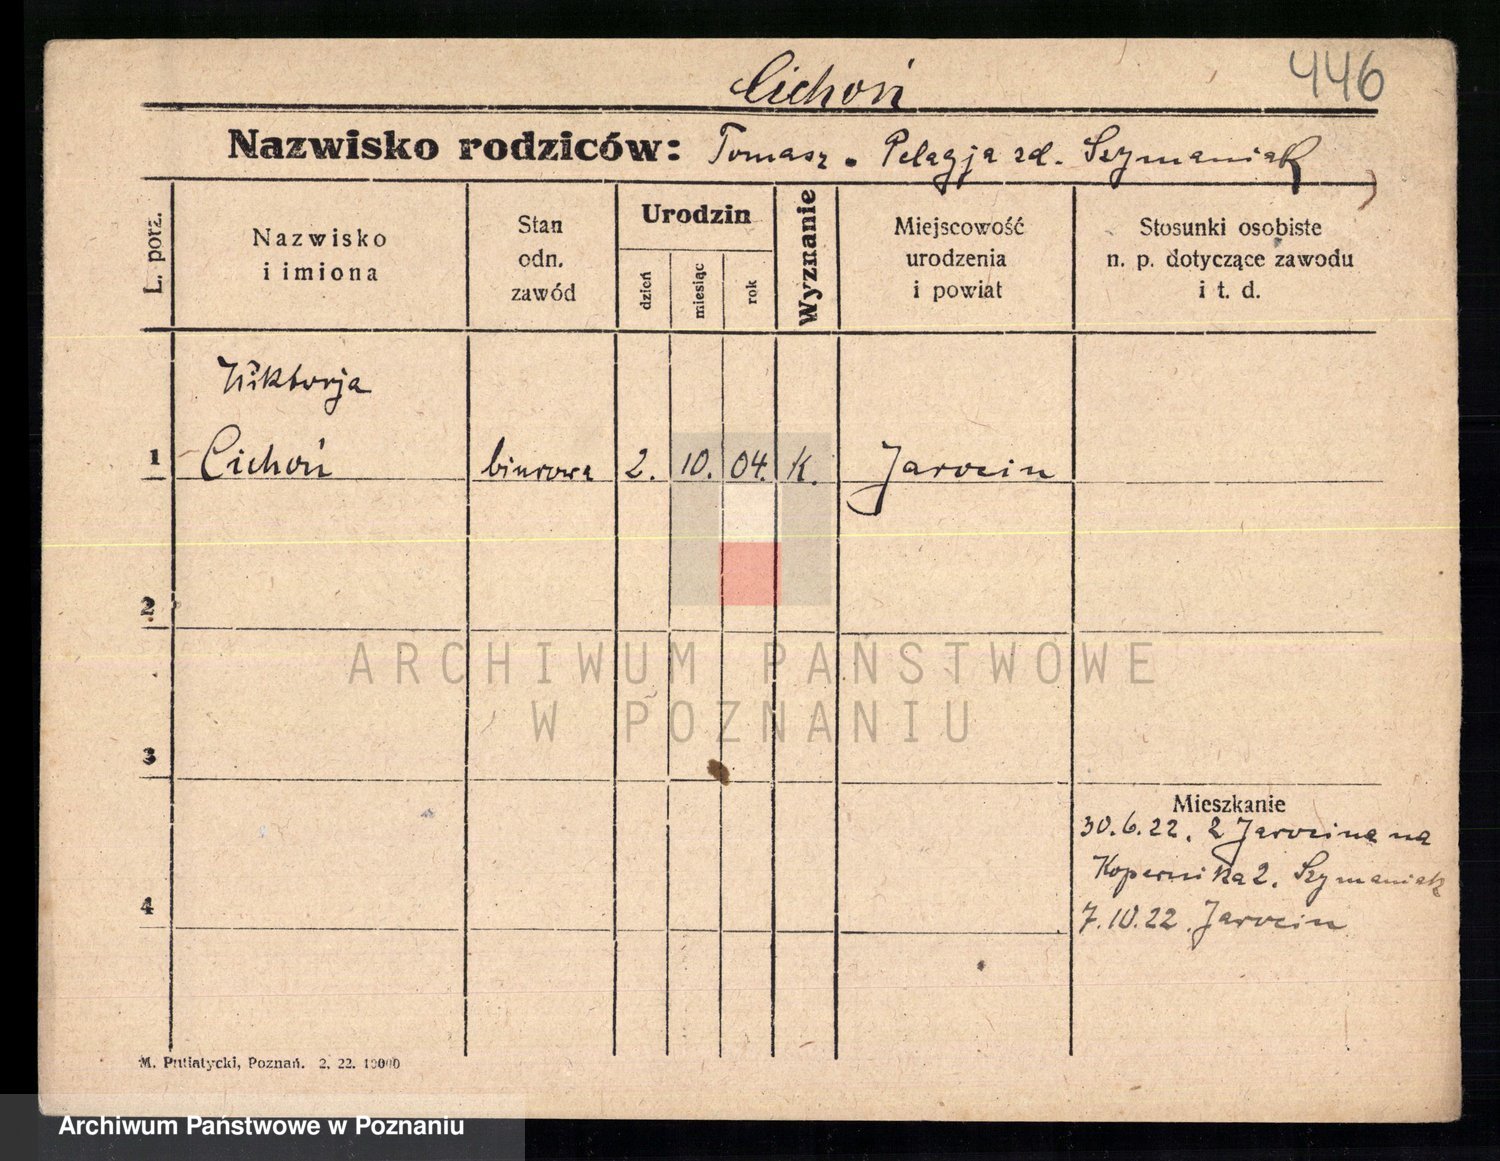 Cichoń
446
Nazwisko rodziców: Tomasz. Pelagja zd. Szymaniak
L. porz.
Nazwisko
i imiona
Stan
odn.
zawód
Urodzin
dzień
miesiąc
rok
Wyznanie
Miejscowość
urodzenia
i powiat
Stosunki osobiste
n. p. dotyczące zawodu
i t. d.
Wiktorja
1 Cichoń biurowa 2. 10. 04. K. Jarocin
2
3
4
Mieszkanie
30.6.22. z Jarocina na
Kopernika 2. Szymaniak
7.10.22. Jarocin
M. Putiatycki, Poznań. 2. 22. 10000
ARCHIWUM PAŃSTWOWE
W POZNANIU
Archiwum Państwowe w Poznaniu